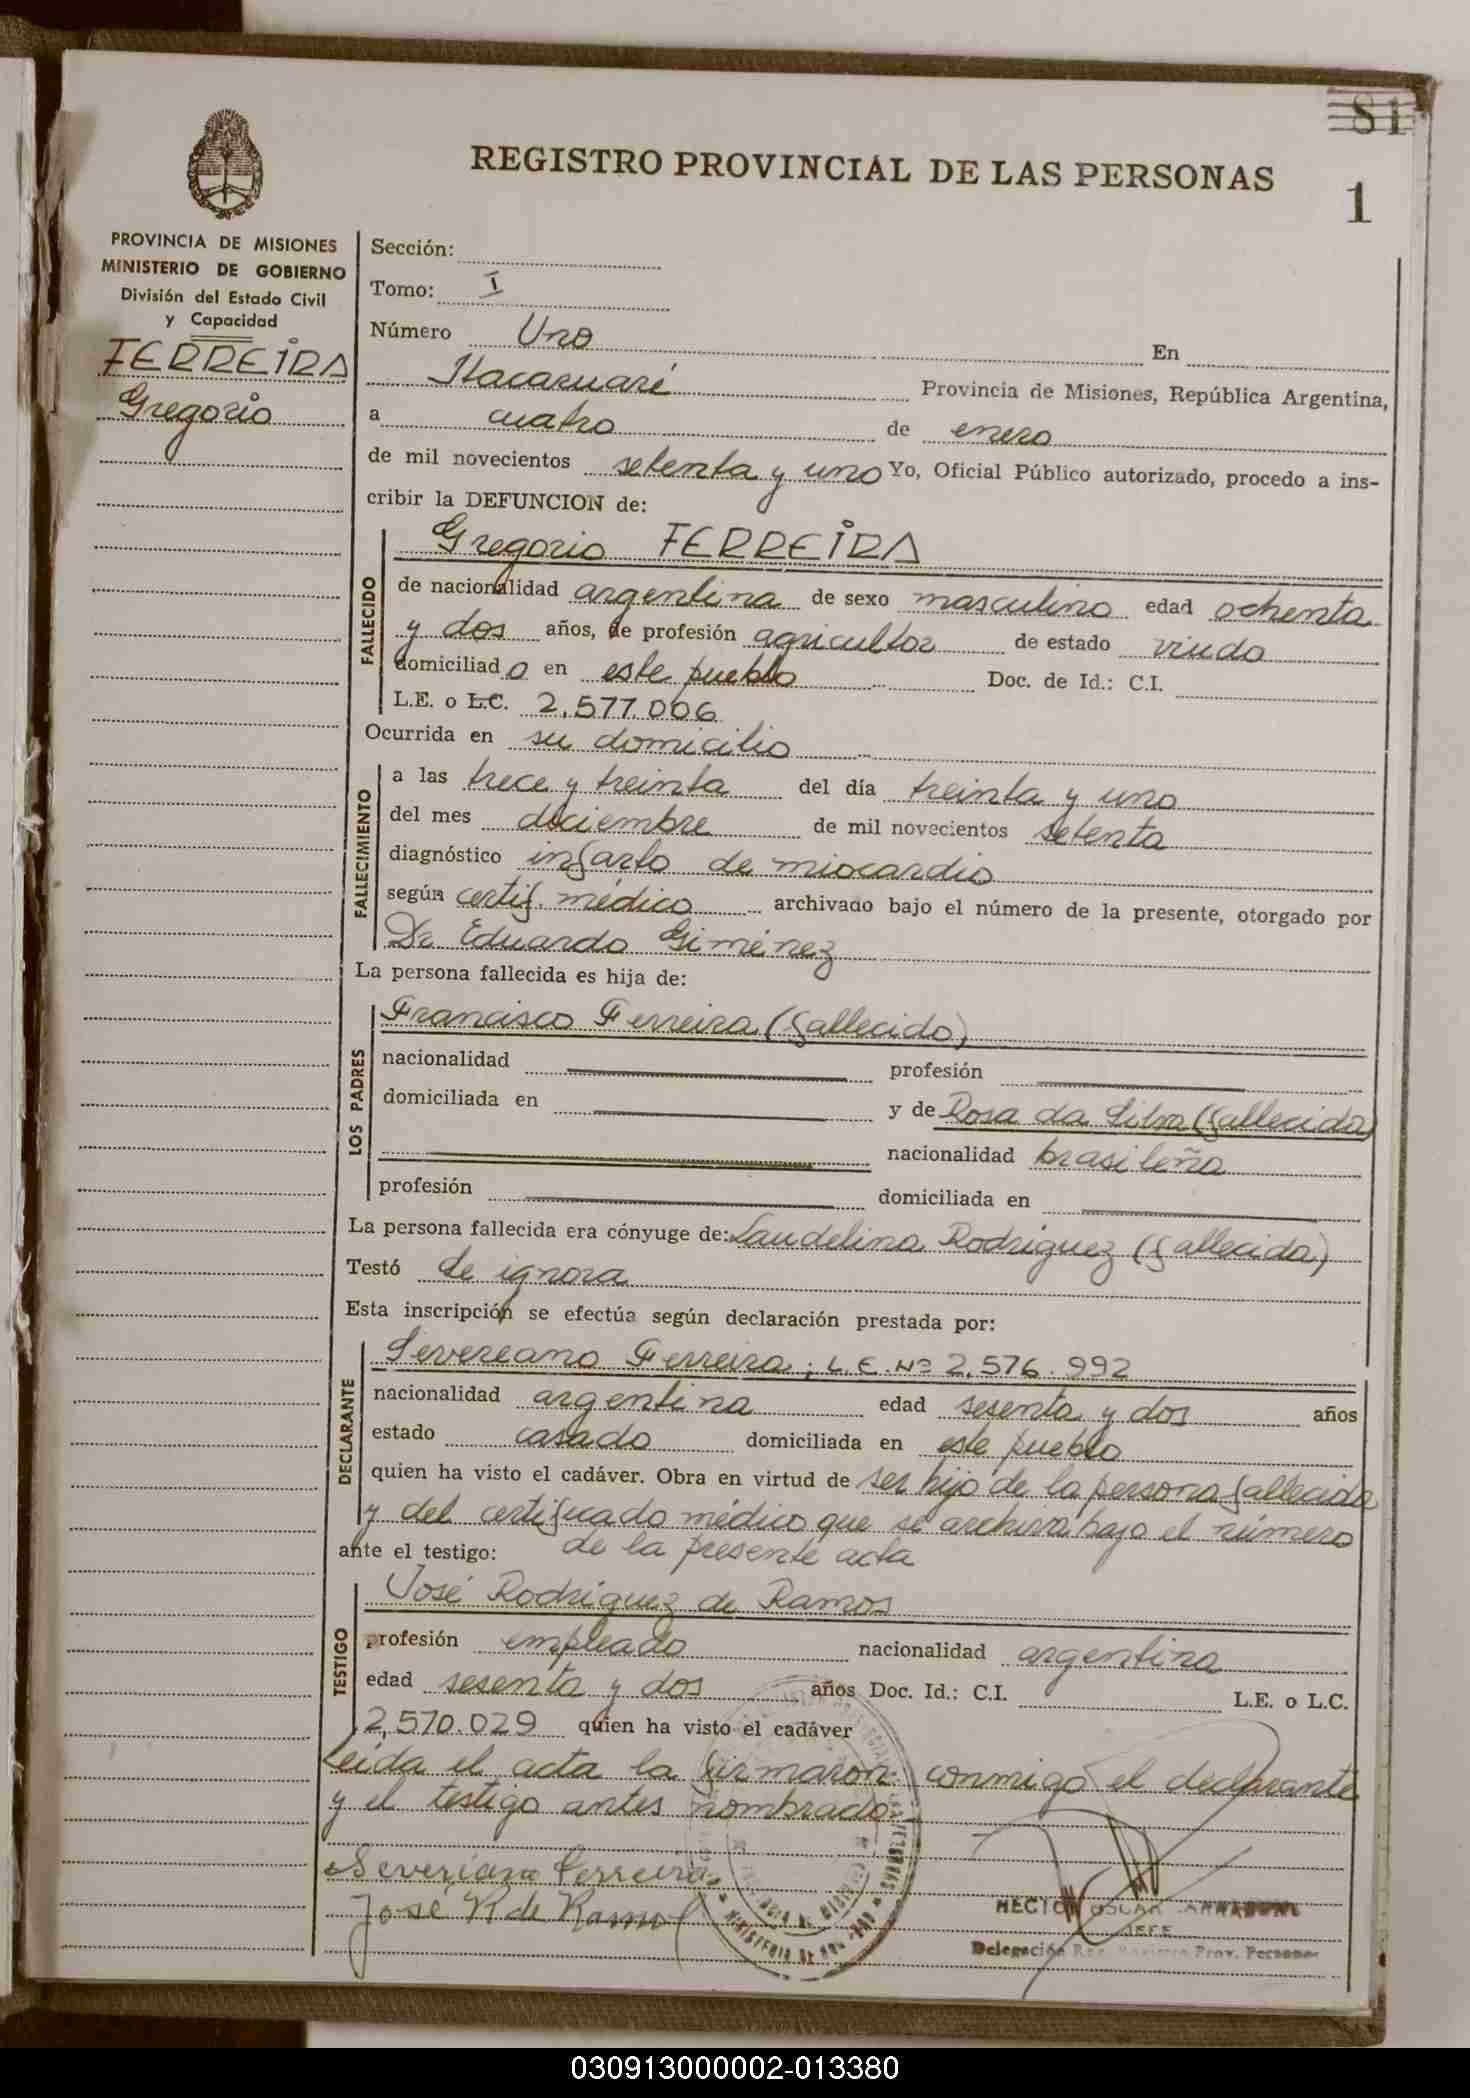 81
REGISTRO PROVINCIAL DE LAS PERSONAS
1
PROVINCIA DE MISIONES
MINISTERIO DE GOBIERNO
División del Estado Civil
y Capacidad
FERREIRA
Gregorio
Sección:
Tomo: I
Número Uno En
Itacaruaré Provincia de Misiones, República Argentina,
a cuatro de enero
de mil novecientos setenta y uno Yo, Oficial Público autorizado, procedo a ins-
cribir la DEFUNCION de:
FALLECIDO
Gregorio FERREIRA
de nacionalidad argentina de sexo masculino edad ochenta
y dos años, de profesión agricultor de estado viudo
domiciliado en este pueblo Doc. de Id.: C.I.
L.E. o L.C. 2.577.006
Ocurrida en su domicilio
FALLECIMIENTO
a las trece y treinta del día treinta y uno
del mes diciembre de mil novecientos setenta
diagnóstico infarto de miocardio
según certif. médico archivado bajo el número de la presente, otorgado por
Dr Eduardo Giménez
La persona fallecida es hija de:
LOS PADRES
Francisco Ferreira (fallecido)
nacionalidad profesión
domiciliada en y de Rosa da Silva (fallecida)
nacionalidad brasileña
profesión domiciliada en
La persona fallecida era cónyuge de: Laudelina Rodríguez (fallecida)
Testó Se ignora
Esta inscripción se efectúa según declaración prestada por:
DECLARANTE
Severeano Ferreira; L.E. Nº 2.576.992
nacionalidad argentina edad sesenta y dos años
estado casado domiciliada en este pueblo
quien ha visto el cadáver. Obra en virtud de ser hijo de la persona fallecida
y del certificado médico que se archiva bajo el número
ante el testigo: de la presente acta
TESTIGO
José Rodríguez de Ramos
profesión empleado nacionalidad argentina
edad sesenta y dos años Doc. Id.: C.I. L.E. o L.C.
2.570.029 quien ha visto el cadáver
Leida el acta la firmaron conmigo el declarante
y el testigo antes nombrado.
Severiano Ferreira
José R de Ramos
HECTOR OSCAR
JEFE
Delegación Prov. Personas
030913000002-013380